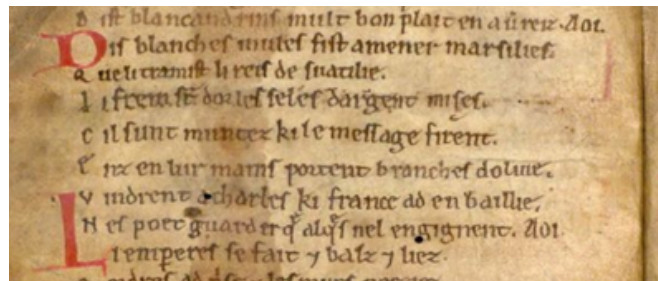 D ist blancandrins mult bon plait en aűreiz. Aoi.
Dis blanches mules fist amener marsilies.
Q ue li tramist li reis de suatilie.
L i frein sť dor les seles dargent mises.
C il sunt muntez ki le message firent.
E nz en lur mains portent branches dolive.
V indrent a charles ki france ad en baillie.
N es poet guarder q̃ alqͥs nel engignent. Aoi
Li emperes se fait ⁊ balz ⁊ liez.